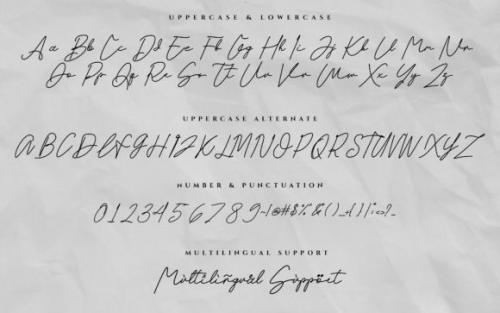 UPPERCASE & LOWERCASE
Aa Bb Cc Dd Ee Ff Gg Hh Ii Jj Kk Ll Mm Nn
Oo Pp Qq Rr Ss Tt Uu Vv Ww Xx Yy Zz
UPPERCASE ALTERNATE
A B C D E F G H I J K L M N O P Q R S T U V W X Y Z
NUMBER & PUNCTUATION
0 1 2 3 4 5 6 7 8 9
MULTILINGUAL SUPPORT
Mùltilíñguàl Sùppöet